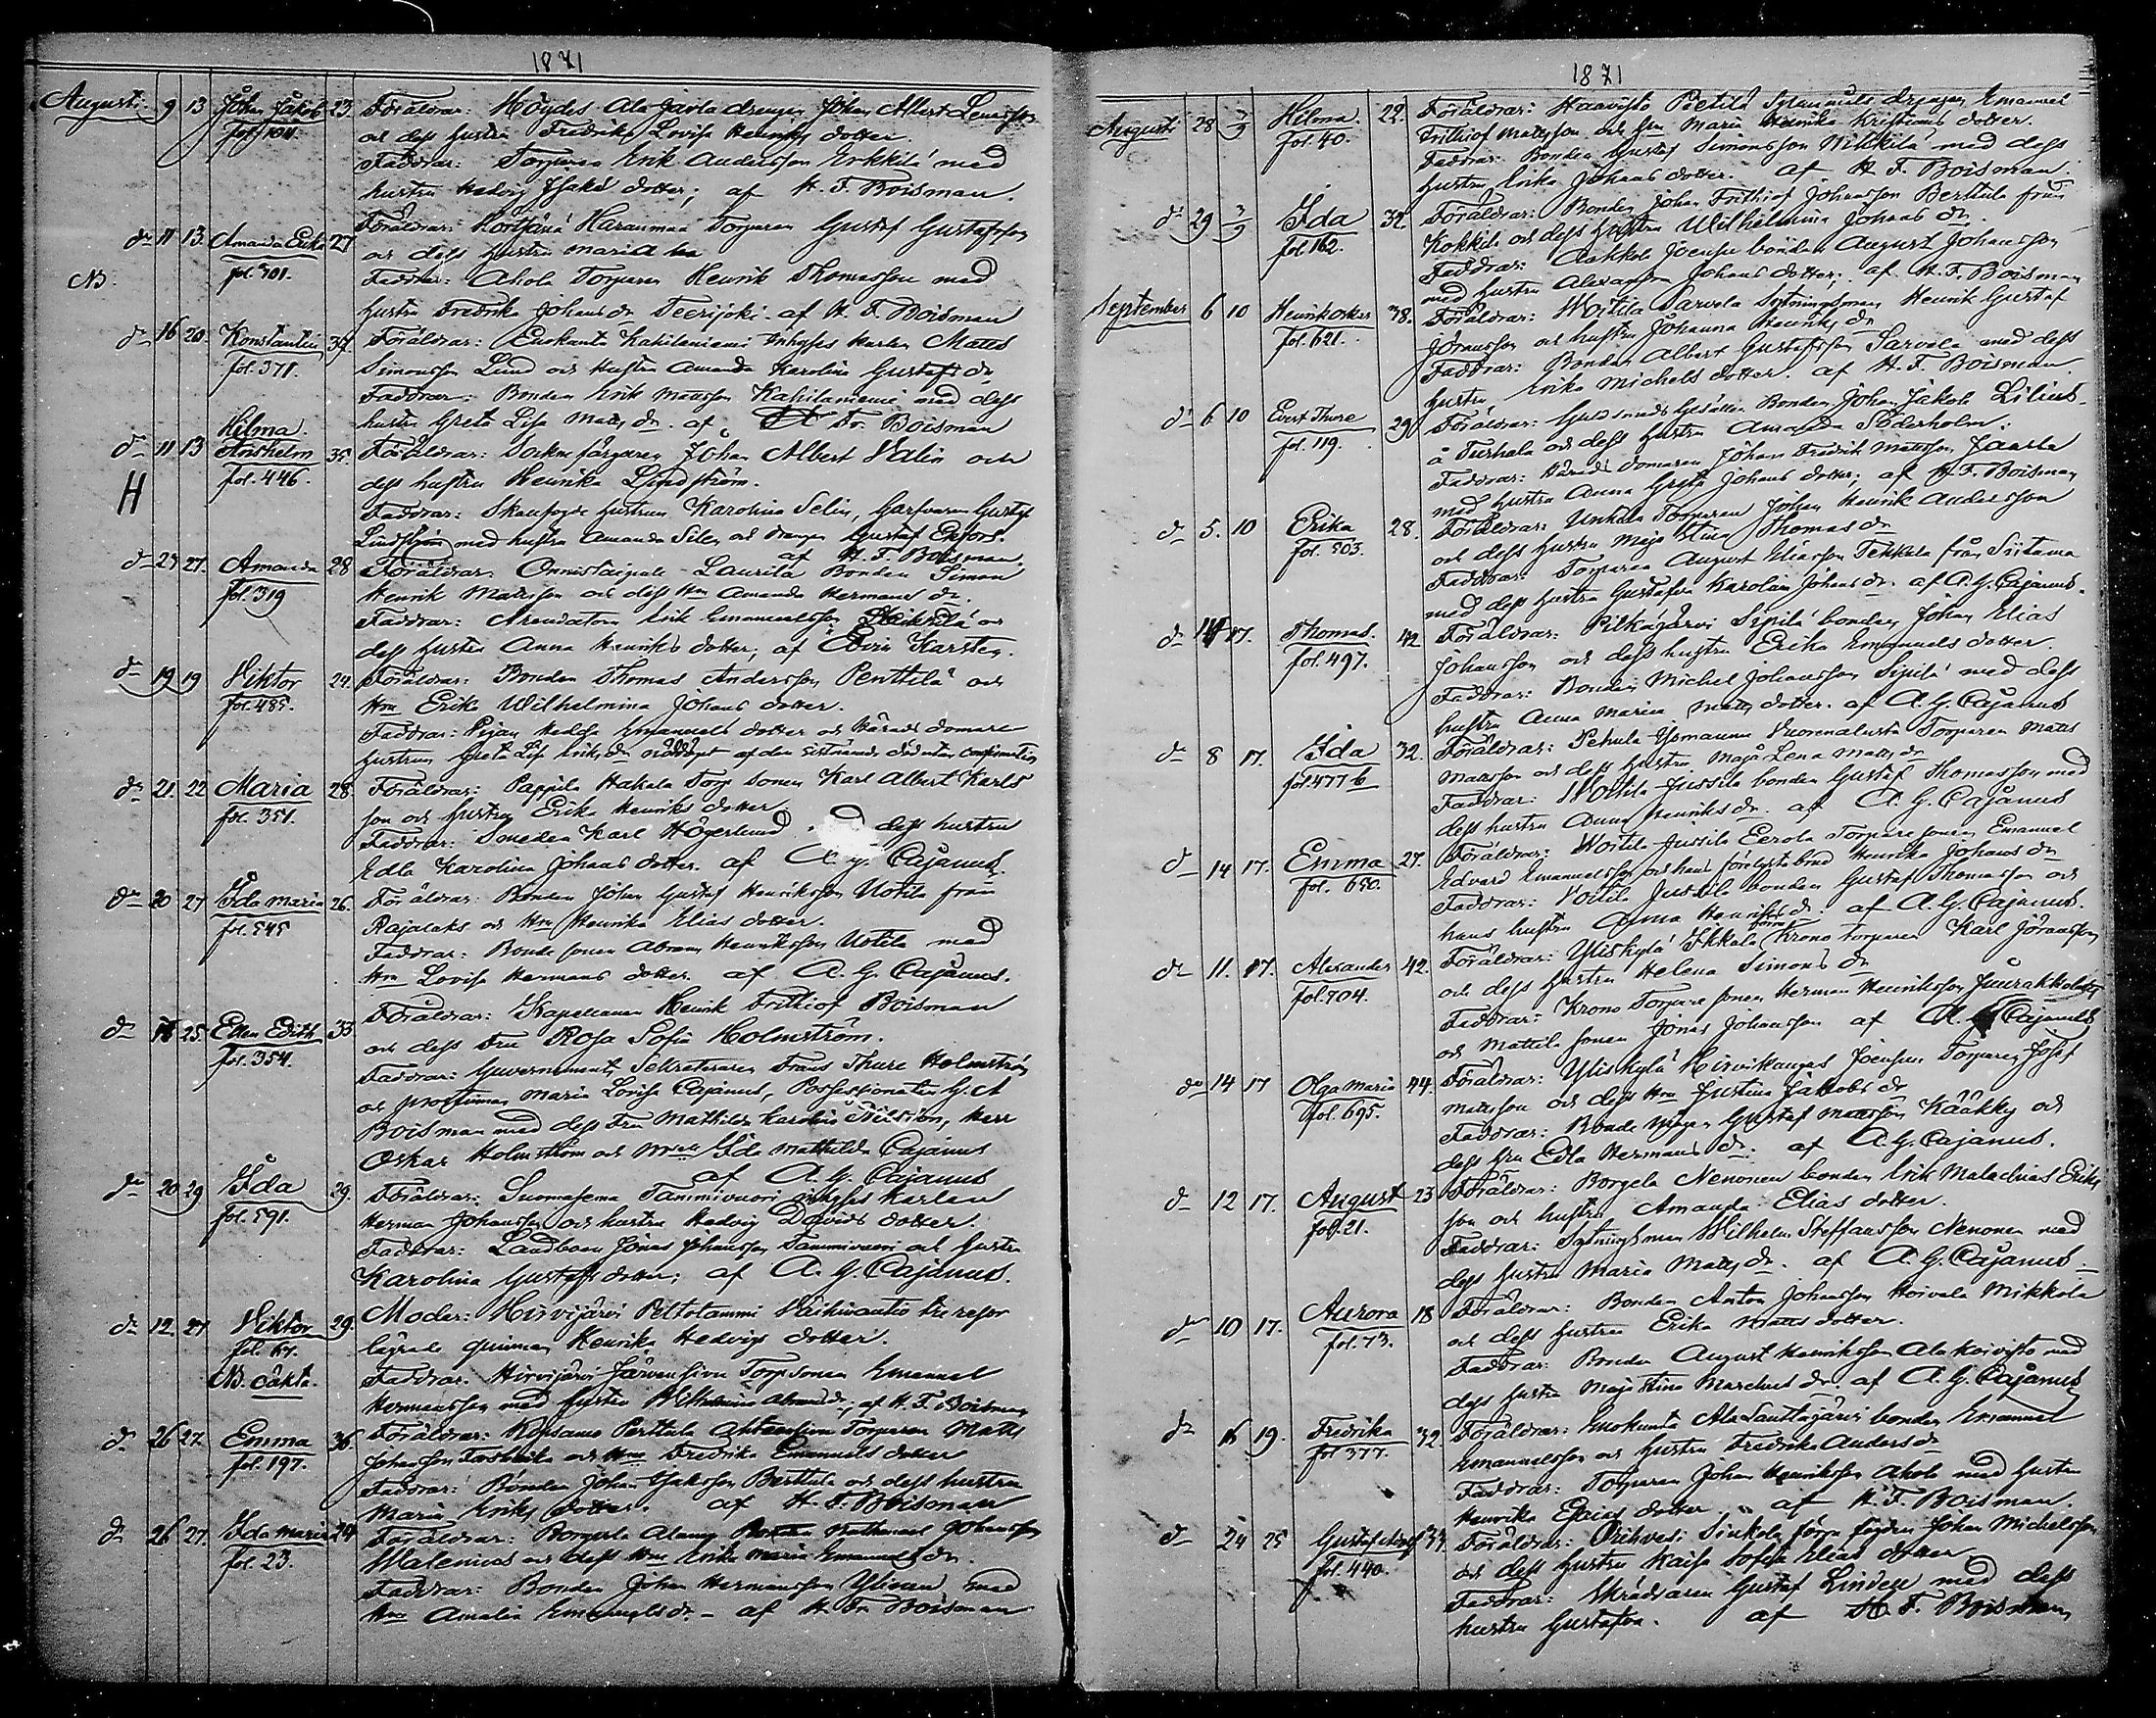 1871
Augusti 9 13 Johan Jakob 23. Föräldrar: Höydes Ala Jaala drengen Johan Albert
fol. 104. och dess hustru Fredrika Lovisa Henriks dotter
Faddrar: Torparen Erik Andersson Erkkilä med
hustru Hedvig Isaks dotter; af H. F. Boisman.
do 11 13. Amanda Erika 27 Föräldrar: Haranmaa Torparen Gustaf Gustafsson
och dess hustru Maria
NB. fol. 301. Faddrar: Ahola Torparen Henrik Thomasson med
hustru Fredrika Johans dr Teerijoki af H. F. Boisman
do 16 20 Konstantin 37. Föräldrar: Enokunta Kahilaniemi Inhyses karlen Matts
fol. 371. Simonsson Lund och hustru Amanda Karolina Gustafs dr
Faddrar: Bonden Erik Mattsson Kahilaniemi med dess
hustru Greta Lisa Matts dr. af Fr. Boisman
Hilma
do 11 13 35. Föräldrar: Sockne färgaren Johan Albert Valin och
H fol. 446. dess hustru Henrika Lindström.
Faddrar: Skogsfogde hustrun Karolina Selin, Garfvaren Gustaf
Lindström med hustru Amanda och drengen Gustaf Ekfors.
af H. F. Boisman.
do 23 27. Amanda 28 Föräldrar: Onnistaipale Laurila Bonden Simon
fol. 319 Henrik Mattsson och dess Hru Amanda Hermans dr.
Faddrar: Arendatorn Erik Emanuelsson Heikkilä och
dess hustru Anna Henriks dotter; af Edvin Karsten.
do 19 19 Viktor 24. Föräldrar: Bonden Thomas Andersson Penttilä och
fol. 485. Hru Erika Wilhelmina Johans dotter.
Faddrar: Pigan Hedda Emanuels dotter och Härads domare
hustrun Greta Lis Eriks dr nöddöpt af den sistnämnde
do 21. 22 Maria 28. Föräldrar: Pappila Hakala Torp sonen Karl Albert Karls
fol. 351. son och hustru Erika Henriks dotter
Faddrar: Smeden Karl Högerlund dess hustru
Edla Karolina Johans dotter. af A. G. Cajanus.
do 20 27 Ida Maria 26. Föräldrar: Bonden Johan Gustaf Henriksson Uotila från
fol. 545 Rajalaks och Hru Henrika Elias dotter.
Faddrar: Bonde sonen Abram Henriksson Uotila med
Hru Lovisa Hermans dotter. af A. G. Cajanus.
Föräldrar: Kapellanen Henrik Frithiof Boisman
do 25. Ellen Edith 33 och dess Fru Rosa Sofia Holmström.
fol. 354. Faddrar: Guvernements Sekreteraren Frans Thure Holmström
och prostinnan Maria Lovisa Cajanus, Possessionaten G. A
Boisman med dess Fru Mathilda Karolina, Herr
Oskar Holmström och Mll Ida Mathilda Cajanus
af A. G. Cajanus
do 20 29 Ida 29. Föräldrar: Suomasema Tammivuori inhyses karlen
fol. 591. Herman Johansson och hustru Hedvig Davids dotter.
Faddrar: Landboen Jonas Johansson Tammivuori och hustru
Karolina Gustafs dotter; af A. G. Cajanus.
do 12. 27 Viktor 29. Moder: Hirvijärvi Peltotammi tre resor
fol. 67. lägrade qvinnan Henrika Hedvigs dotter.
NB. oäkta. Faddrar: Hirvijärvi Järvensivu Torpsonen Emanuel
Hermansson med hustru Wilhelmina; af H. F. Boisman
do 26 27. Emma 36. Föräldrar: Kopsamo Perttula Ahtiansivu Torparen Matts
fol. 197. Johansson och Hru Fredrika Emanuels dotter
Faddrar: Bonden Johan Isaksson Berttula och dess hustru
Maria Eriks dotter. af H. F. Boisman
do 26 27. Ida Maria 24 Föräldrar: Borgerla Bonden Nathanael Johansson
fol. 23. och dess Hru Erika Maria Emanuels dr.
Faddrar: Bonden Johan Hermansson Ylinen med
Hru Amalia Emanuels dr. af H. Fr. Boisman
1871
Augusti 28 3/9 Helma. 22. Föräldrar: Haavisto Pietilä drengen Emanuel
fol. 40. Frithiof Mattsson och Hru Maria Henrika Kristians dotter.
Faddrar: Bonden Gustaf Simonsson med dess
hustru Erika Johans dotter. af H. F. Boisman.
do 29 3/9 Ida 32. Föräldrar: Bonden Johan Frithiof Johansson Berttula från
fol. 162. Kokkila och dess hustru Wilhelmina Johans dr.
Faddrar: Aakkola Joensuu bonden August Johansson
med hustru Alexandra Johans dotter; af H. F. Boisman
September 6 10 Henrik Oskar 38. Föräldrar: Woitila Sarvela Sytningsman Henrik Gustaf
fol. 621. Jöransson och hustru Johanna Henriks dr
Faddrar: Bonden Albert Gustafsson Sarvela med dess
hustru Erika Michels dotter. af H. F. Boisman.
do 6 10 Evert Thure 29 Föräldrar: Bonden Johan Jakob Lilius
fol. 119. å Turhala och dess hustru Amanda Söderholm.
Faddrar: Härads domaren Johan Fredrik Mattsson Jaala
med hustru Anna Greta Johans dotter; af H. F. Boisman
do 5. 10 Erika 28. Föräldrar: Unkala Torparen Johan Henrik Andersson
fol. 503. och dess hustru Maja Stina Thomas dr
Faddrar: Torparen August Eliasson Tekkala från Siitama
med dess hustru Gustafva Karolina Johans dr. af A. G. Cajanus.
do 14 17. Thomas. 42 Föräldrar: Pitkäjärvi Sipilä bonden Johan Elias
fol. 497. Johansson och dess hustru Erika Emanuels dotter.
Faddrar: Bonden Michel Johansson Sipilä med dess
hustru Anna Maria Matts dotter. af A. G. Cajanus
do 8 17. Ida 32. Föräldrar: Pehula Ysmainen Vuorenalusta Torparen Matts
fol. 477 b Mattsson och dess hustru Maja Lena Matts dr
Faddrar: Woitila Jussila bonden Gustaf Thomasson med
dess hustru Anna Henriks dr. af A. G. Cajanus
do 14 17. Emma 27. Föräldrar: Woitila Jussila Eerola Torparesonen Emanuel
fol. 650. Edvard Emanuelsson och hans förelysta brud Henrika Johans dr
Faddrar: Voitila Jussila bonden Gustaf Thomasson och
hans hustru Anna Henriks dr. af A. G. Cajanus.
do 11. 17. Alexander 42. Föräldrar: Yliskylä Ikkala Krono torparen Karl Jöransson
fol. 704. och dess hustru Helena Simons dr
Faddrar: Krono Torpare sonen Herman Henriksson
och Mattila sonen Jonas Johansson af A. G. Cajanus
do 14 17 Olga Maria 44. Föräldrar: Yliskylä Hirvikangas Joensuu Torparen Josef
fol. 695. Mattsson och dess Hru Justina Jakobs dr
Faddrar: Bonde Gustaf Mattsson Kääkky och
dess fru Edla Hermans dr. af A. G. Cajanus.
do 12 17. August 23 Föräldrar: Borgela Nenonen bonden Erik Malachias Eriks
fol. 21. son och hustru Amanda Elias dotter.
Faddrar: Sytningsman Wilhelm Steffansson Nenonen med
dess hustru Maria Matts dr. af A. G. Cajanus.
do 10 17. Aurora 18 Föräldrar: Bonden Anton Johansson Hoivala Mikkola
fol. 73. och dess hustru Erika Matts dotter.
Faddrar: Bonden August Henriksson Ala Koivisto med
dess hustru Maja Stina dr. af A. G. Cajanus
do 16 19. Fredrika 32 Föräldrar: Enokunta Ala Lauttajärvi bonden Emanuel
fol 377. Emanuelsson och hustru Fredrika Anders dr
Faddrar: Torparen Johan Henriksson Ahola med hustru
Henrika Elias dotter. af H. F. Boisman.
do 24 25 Gustaf Adolf 33 Föräldrar: Orihvesi Sinkola fogden Johan Michelsson
fol. 440. och dess hustru Kaisa Sofia Elias dotter
Faddrar: Skräddaren Gustaf Lindell med dess
hustru Gustafva. af H. F. Boisman